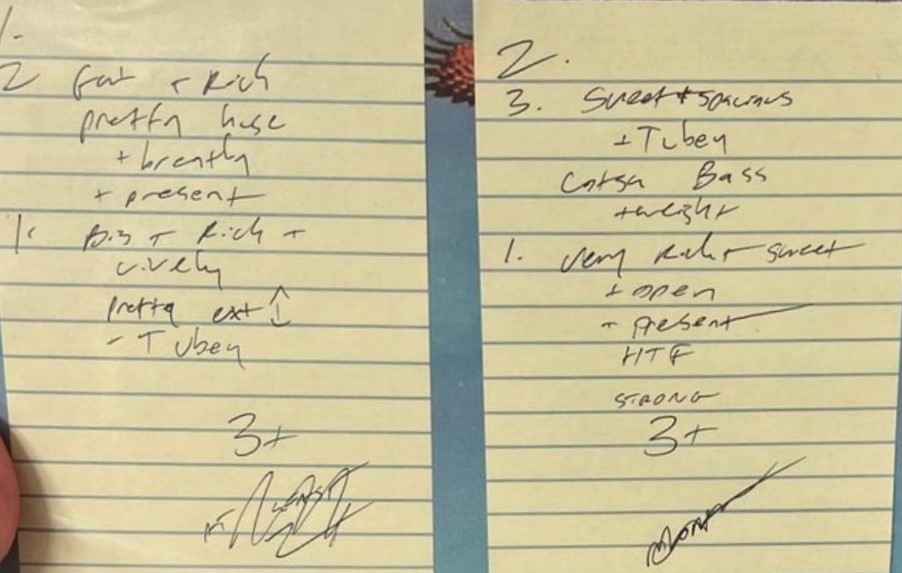 1-
2 Fat + Rich
pretty huge
+ breathy
+ present
1. Big + Rich +
lively
pretty ext ↕
- Tubey
3+
2.
3. Sweet + spacious
+ Tubey
Bass
+ weight
1. very rich + sweet
+ open
- present
HTF
STRONG
3+